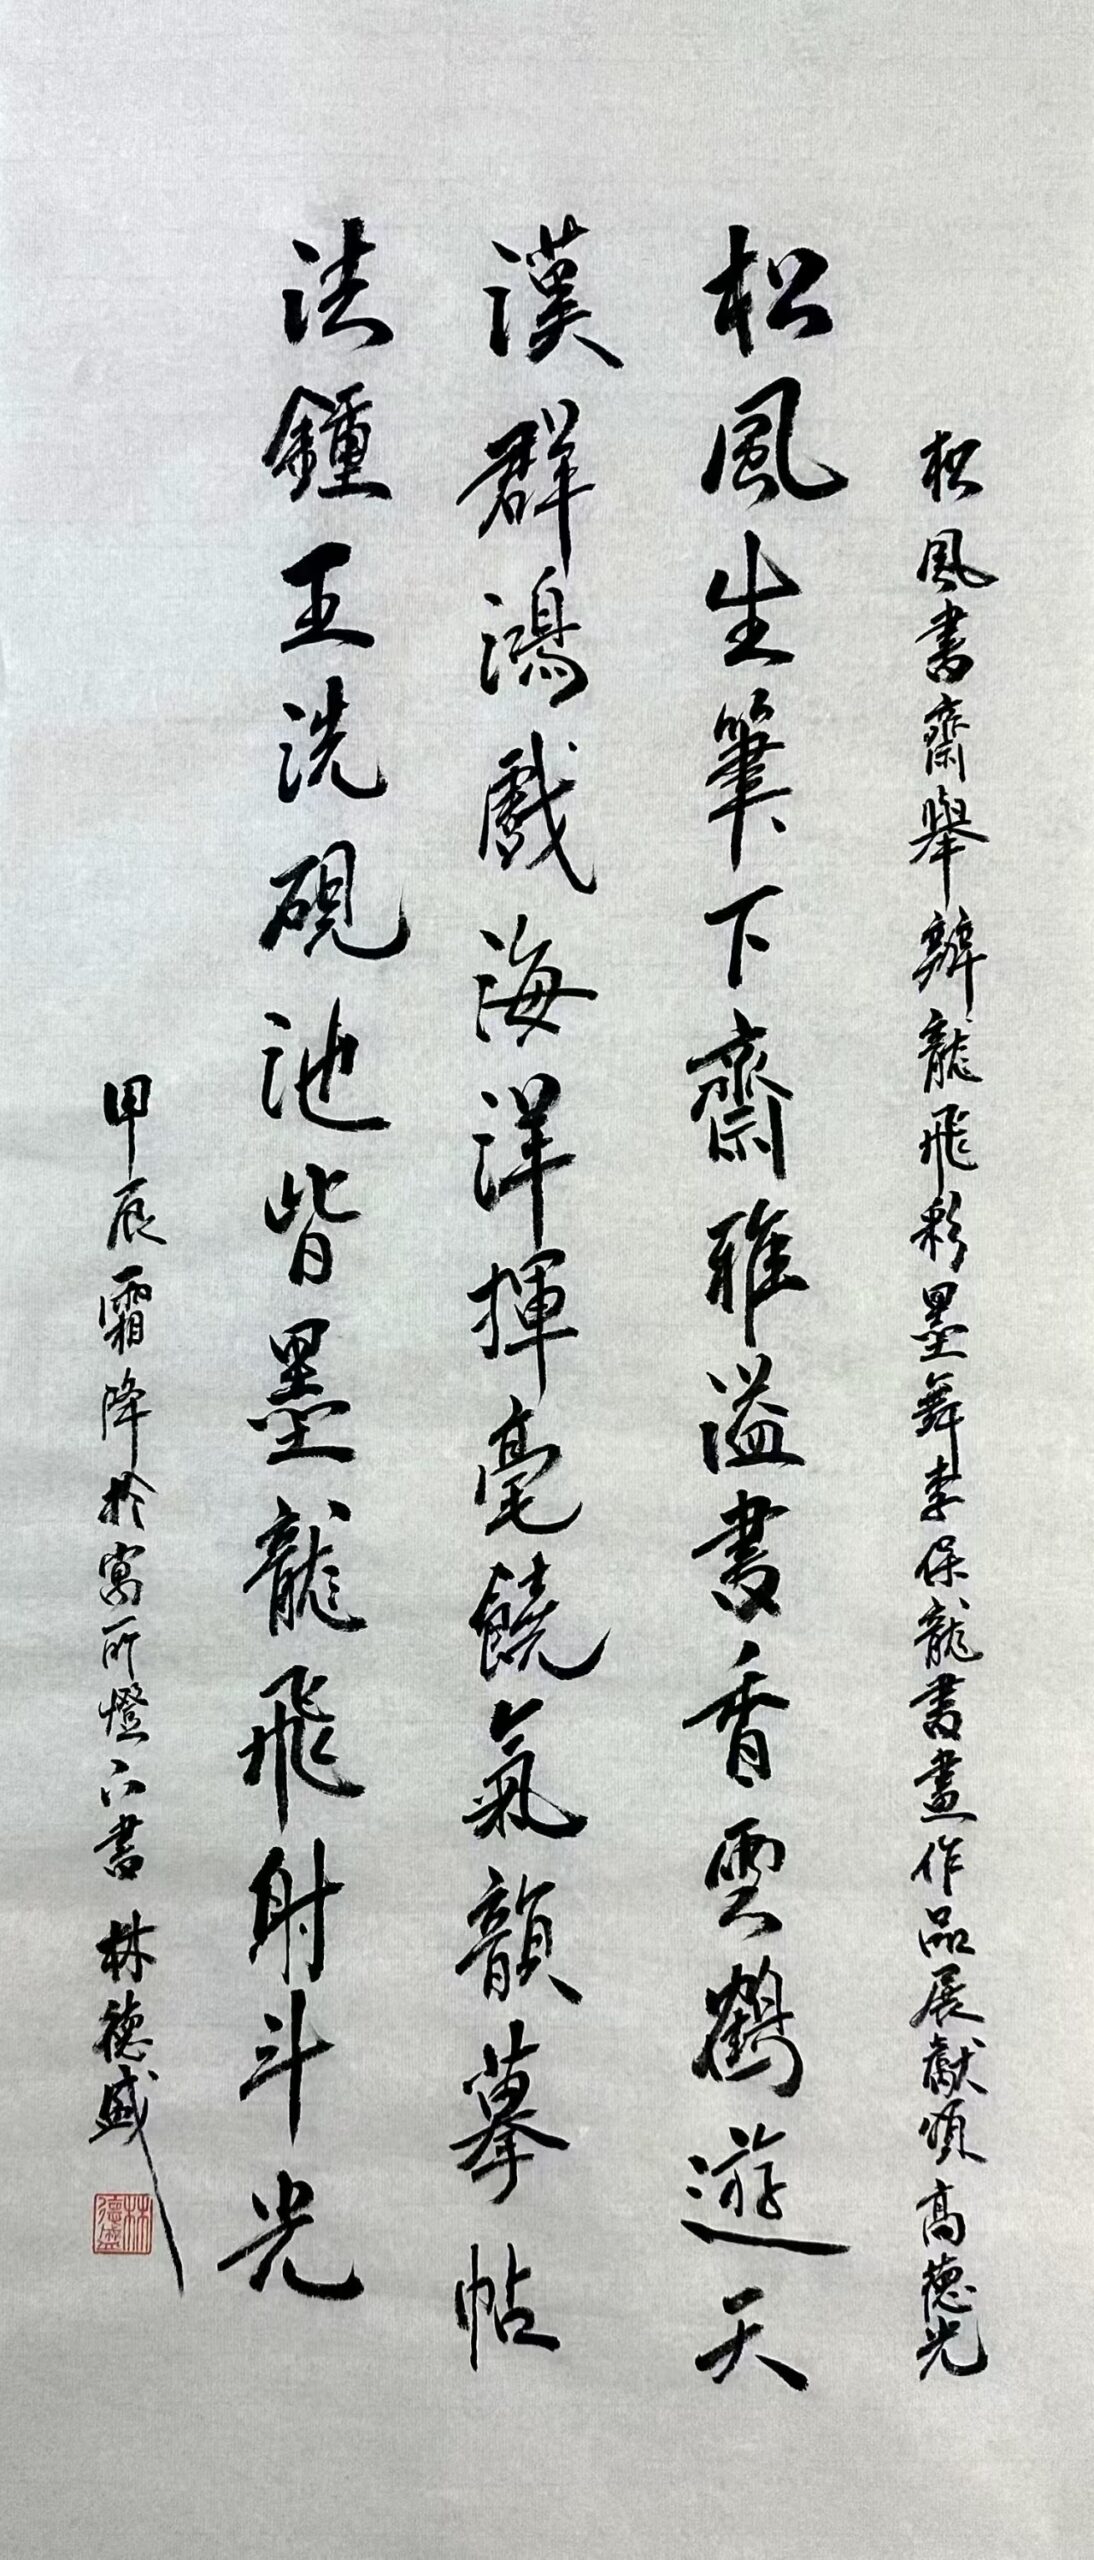 松風書齋舉辦龍飛彩墨舞李保龍書畫作品展獻頌高德光
松風生筆下齋雅溢書香雲鶴遊天
漢群鴻戲海洋揮毫饒氣韻摹帖
法鍾王洗硯池皆墨龍飛射斗光
甲辰霜降於寓所燈下書 林德盛
林德盛